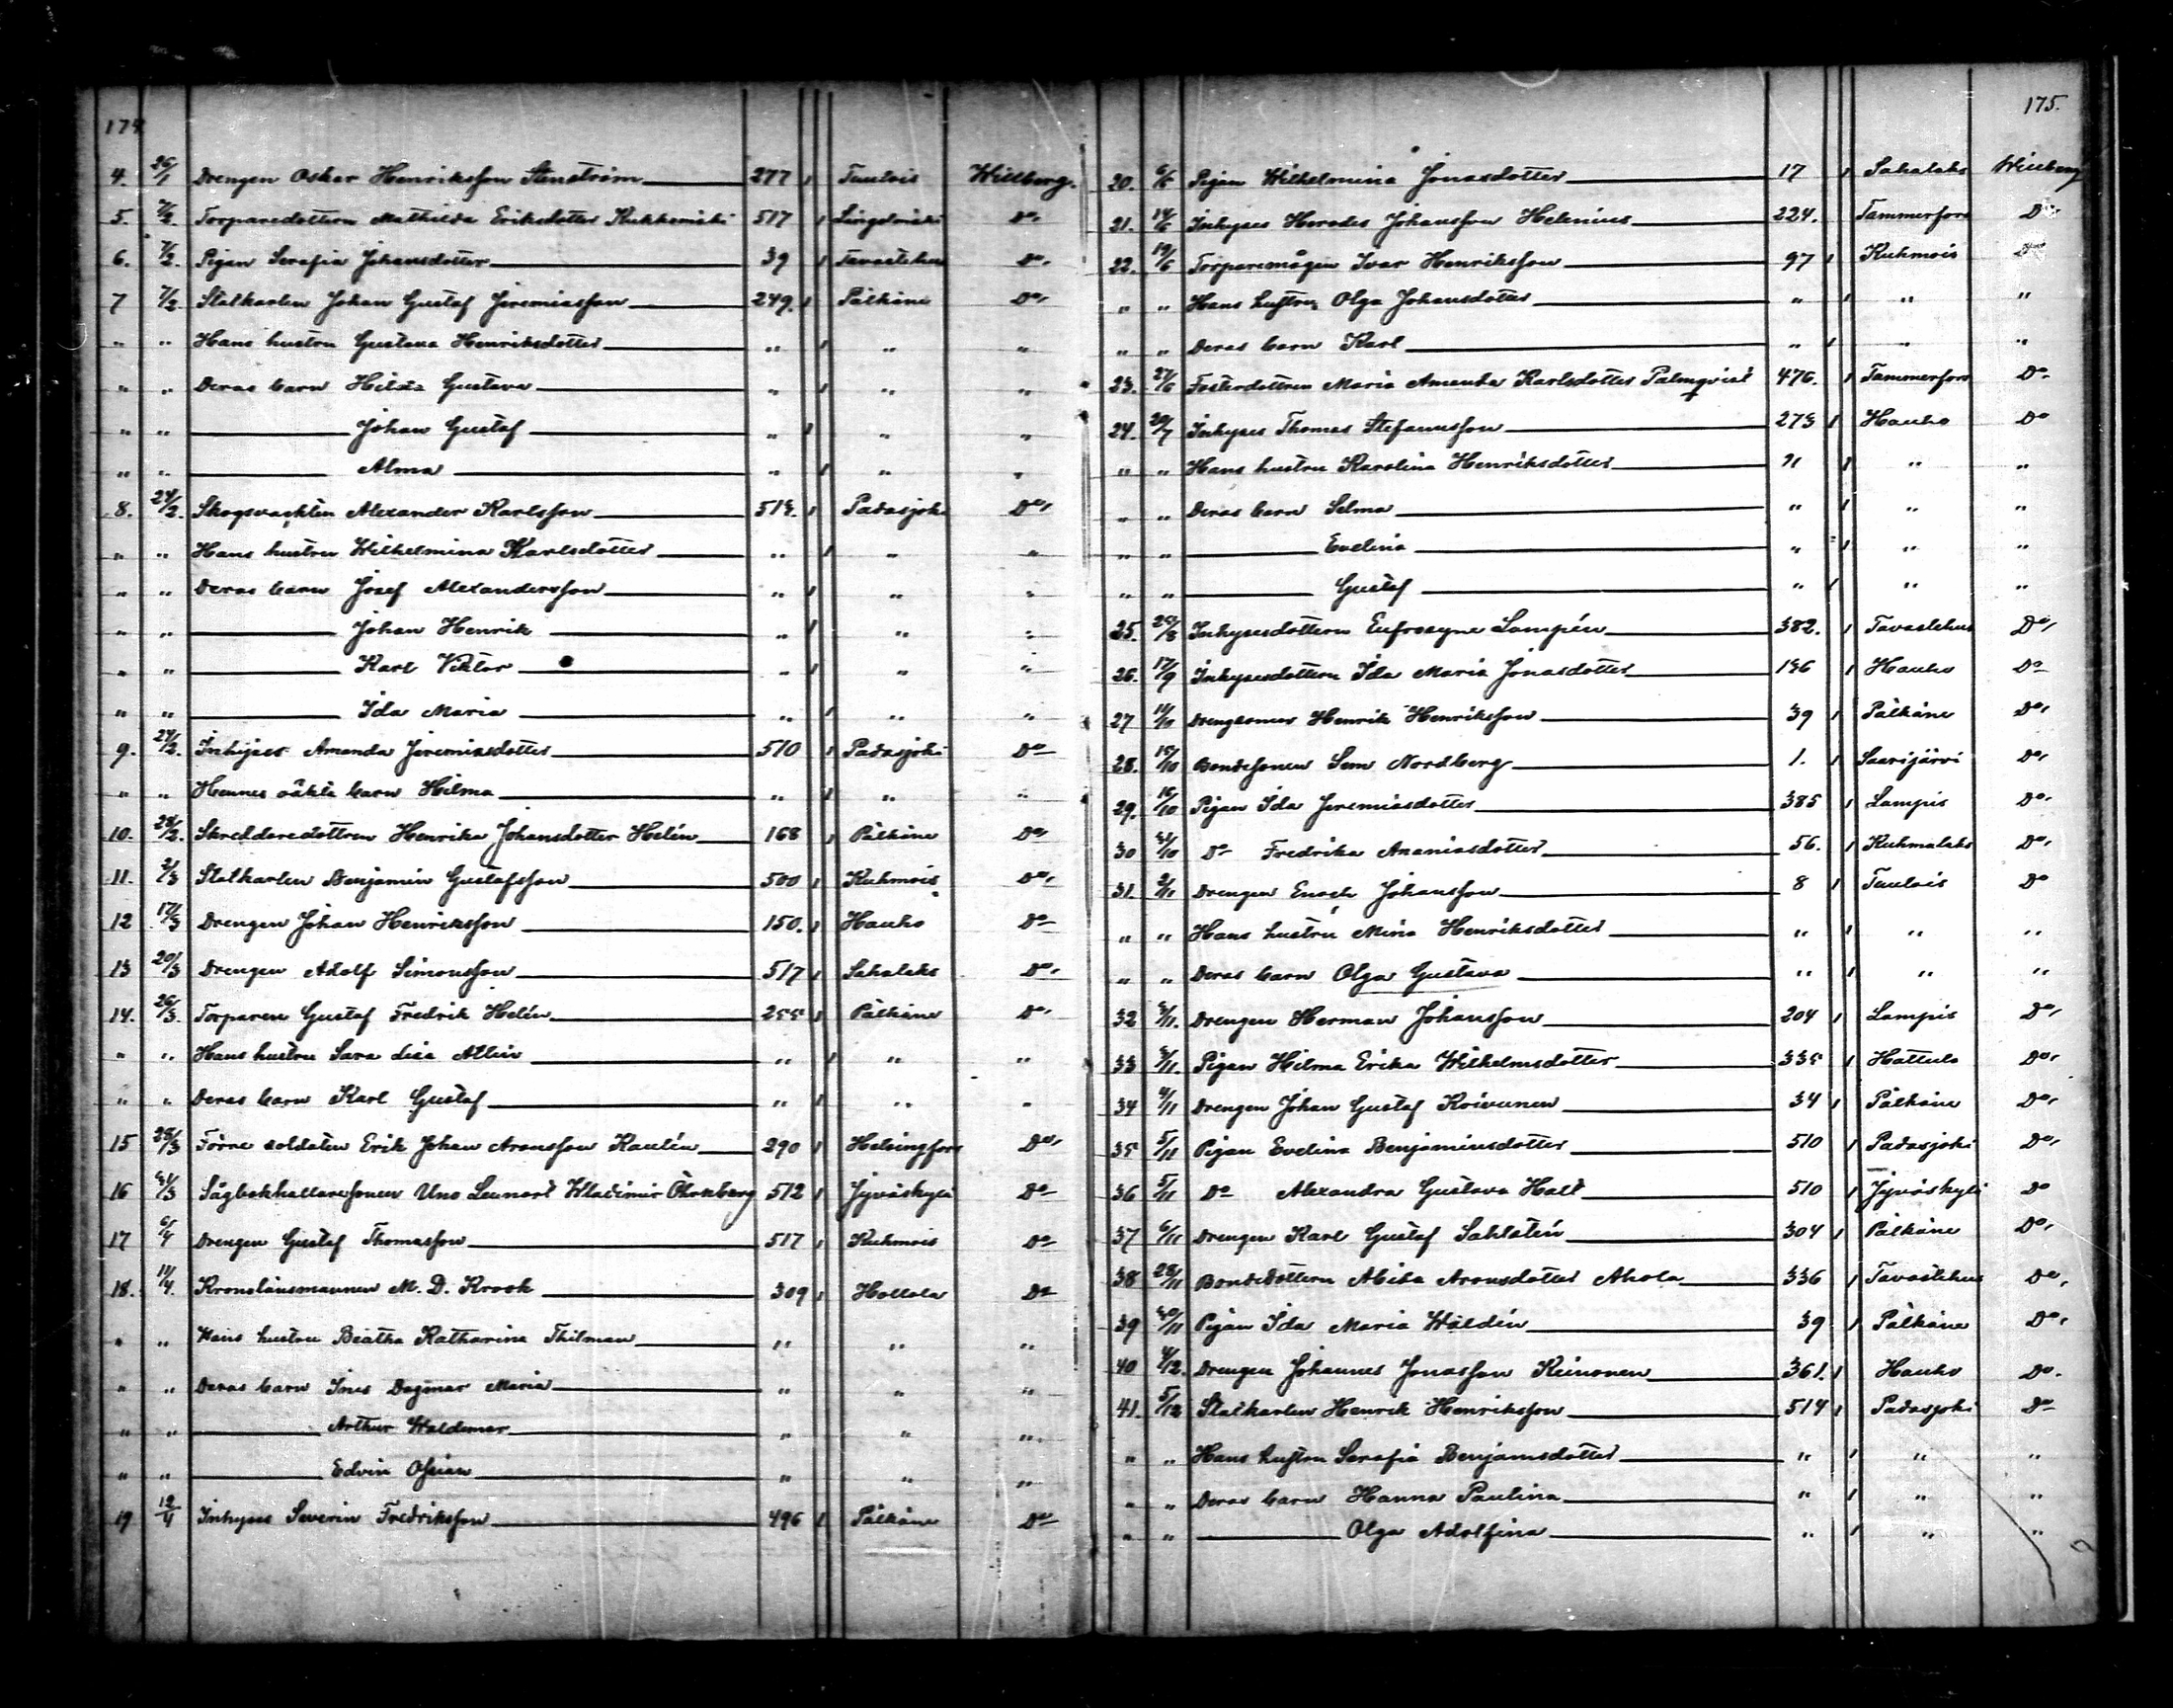 174
4. 26/1 Drengen Oskar Henriksson Stenström 277 1 Tuulois Willberg.
5. 7/2 Torparedottern Mathilda Eriksdotter Kukkomäki 517 1 Längelmäki Do,
6. 7/2 Pigan Serafia Johansdotter 39 1 Tavastehus Do,
7 7/2 Statkarlen Johan Gustaf Jeremiasson 249. 1 Pälkäne Do,
" " Hans hustru Gustava Henriksdotter " 1 " "
" " Deras barn Hilda Gustava " 1 " "
" " Johan Gustaf " 1 " "
" " Alma " 1 " "
8. 24/2. Skogsvakten Alexander Karlsson 514. 1 Padasjoki Do,
" " Hans hustru Wilhelmina Karlsdotter " 1 " "
" " Deras barn Josef Alexandersson " 1 " "
" " Johan Henrik " 1 " "
" " Karl Viktor " 1 " "
" " Ida Maria " 1 " "
9. 24/2. Inhyses Amanda Jeremiasdotter 510 1 Padasjoki Do
" " Hennes oäkta barn Hilma " 1 " "
10. 28/2. Skreddaredottren Henrika Johansdotter Helén 168 1 Pälkäne Do,
11. 2/3 Statkarlen Benjamin Gustafsson 500 1 Kuhmois Do,
12 17/3 Drengen Johan Henriksson 150. 1 Hauho Do
13 20/3 Drengen Adolf Simonsson 517 1 Sahalaks Do,
14. 26/3. Torparen Gustaf Fredrik Helén 255 1 Pälkäne Do,
" " Hans hustru Sara Lisa Allin " 1 " "
" " Deras barn Karl Gustaf " 1 " "
15 28/3 Förre soldaten Erik Johan Aronsson Kaulén 290 1 Helsingfors Do,
16 31/3 Sågbokhållaresonen Uno Lennart Wladimir Öhrnberg 512 1 Jyväskylä Do
17 6/4 Drengen Gustaf Thomasson 517 1 Kuhmois Do
18. 11/4. Kronolänsmannen M. D. Krook 309 1 Hollola Do
" " Hans hustru Beatha Katharina Thilman " " "
" " Deras barn Ines Dagmar Maria " " "
" " Arthur Waldemar " " "
" " Edvin Ossian " " "
19 12/4 Inhyses Severin Fredriksson 496 1 Pälkäne Do
175.
20. 6/6 Pigan Wilhelmina Jonasdotter 17 1 Sahalaks Willberg
21. 14/6 Inhyses Herodes Johansson Helenius 224. Tammerfors Do
22. 19/6 Torparemågen Ivar Henriksson 97 1 Kuhmois Do
" " Hans hustru Olga Johansdotter " 1 " "
" " Deras barn Karl " 1 " "
23. 27/6 Fosterdottren Maria Amanda Karlsdotter Palmqvist 476. 1 Tammerfors Do
24. 20/7 Inhyses Thomas Stefansson 273 1 Hauho Do
" " Hans hustru Karolina Henriksdotter " 1 " "
" " Deras barn Selma " 1 " "
" " Evelina " 1 " "
" " Gustaf " 1 " "
25. 20/8 Inhysesdottern Eufrosyne Lampén 382. 1 Tavastehus Do,
26. 17/9 Inhysesdottern Ida Maria Jonasdotter 196 1 Hauho Do
27 11/10 Drengsonen Henrik Henriksson 39 1 Pälkäne Do,
28. 15/10 Bondesonen Sem Nordberg 1. 1 Saarijärvi Do,
29. 16/10 Pigan Ida Jeremiasdotter 385 1 Lampis Do,
30 31/10 Do Fredrika Ananiasdotter 56. 1 Kuhmalaks Do,
31. 2/11 Drengen Enoch Johansson 8 1 Tuulois Do
" " Hans hustru Mina Henriksdotter " 1 " "
" " Deras barn Olga Gustava " 1 " "
32 3/11. Drengen Herman Johansson 204 1 Lampis Do,
33 3/11. Pigan Hilma Erika Wilhelmsdotter 335 1 Hattula Do,
34 4/11 Drengen Johan Gustaf Koivunen 34 1 Pälkäne Do,
35 5/11 Pigan Evelina Benjaminsdotter 510 1 Padasjoki Do,
36 5/11 Do Alexandra Gustava Hall 510 1 Jyväskylä Do
37 6/11 Drengen Karl Gustaf Sahlstén 304 1 Pälkäne Do,
38 28/11 Bondedottern Alida Aronsdotter Ahola 336 1 Tavastehus Do,
39 30/11 Pigan Ida Maria Waldén 39 1 Pälkäne Do,
40 4/12. Drengen Johannes Jonasson Keinonen 361. 1 Hauho Do.
41. 5/12 Statkarlen Henrik Henriksson 514 1 Padasjoki Do
" " Hans hustru Serafia Benjamsdotter " 1 " "
" " Deras barn Hanna Paulina " 1 " "
" " Olga Adolfina " 1 " "